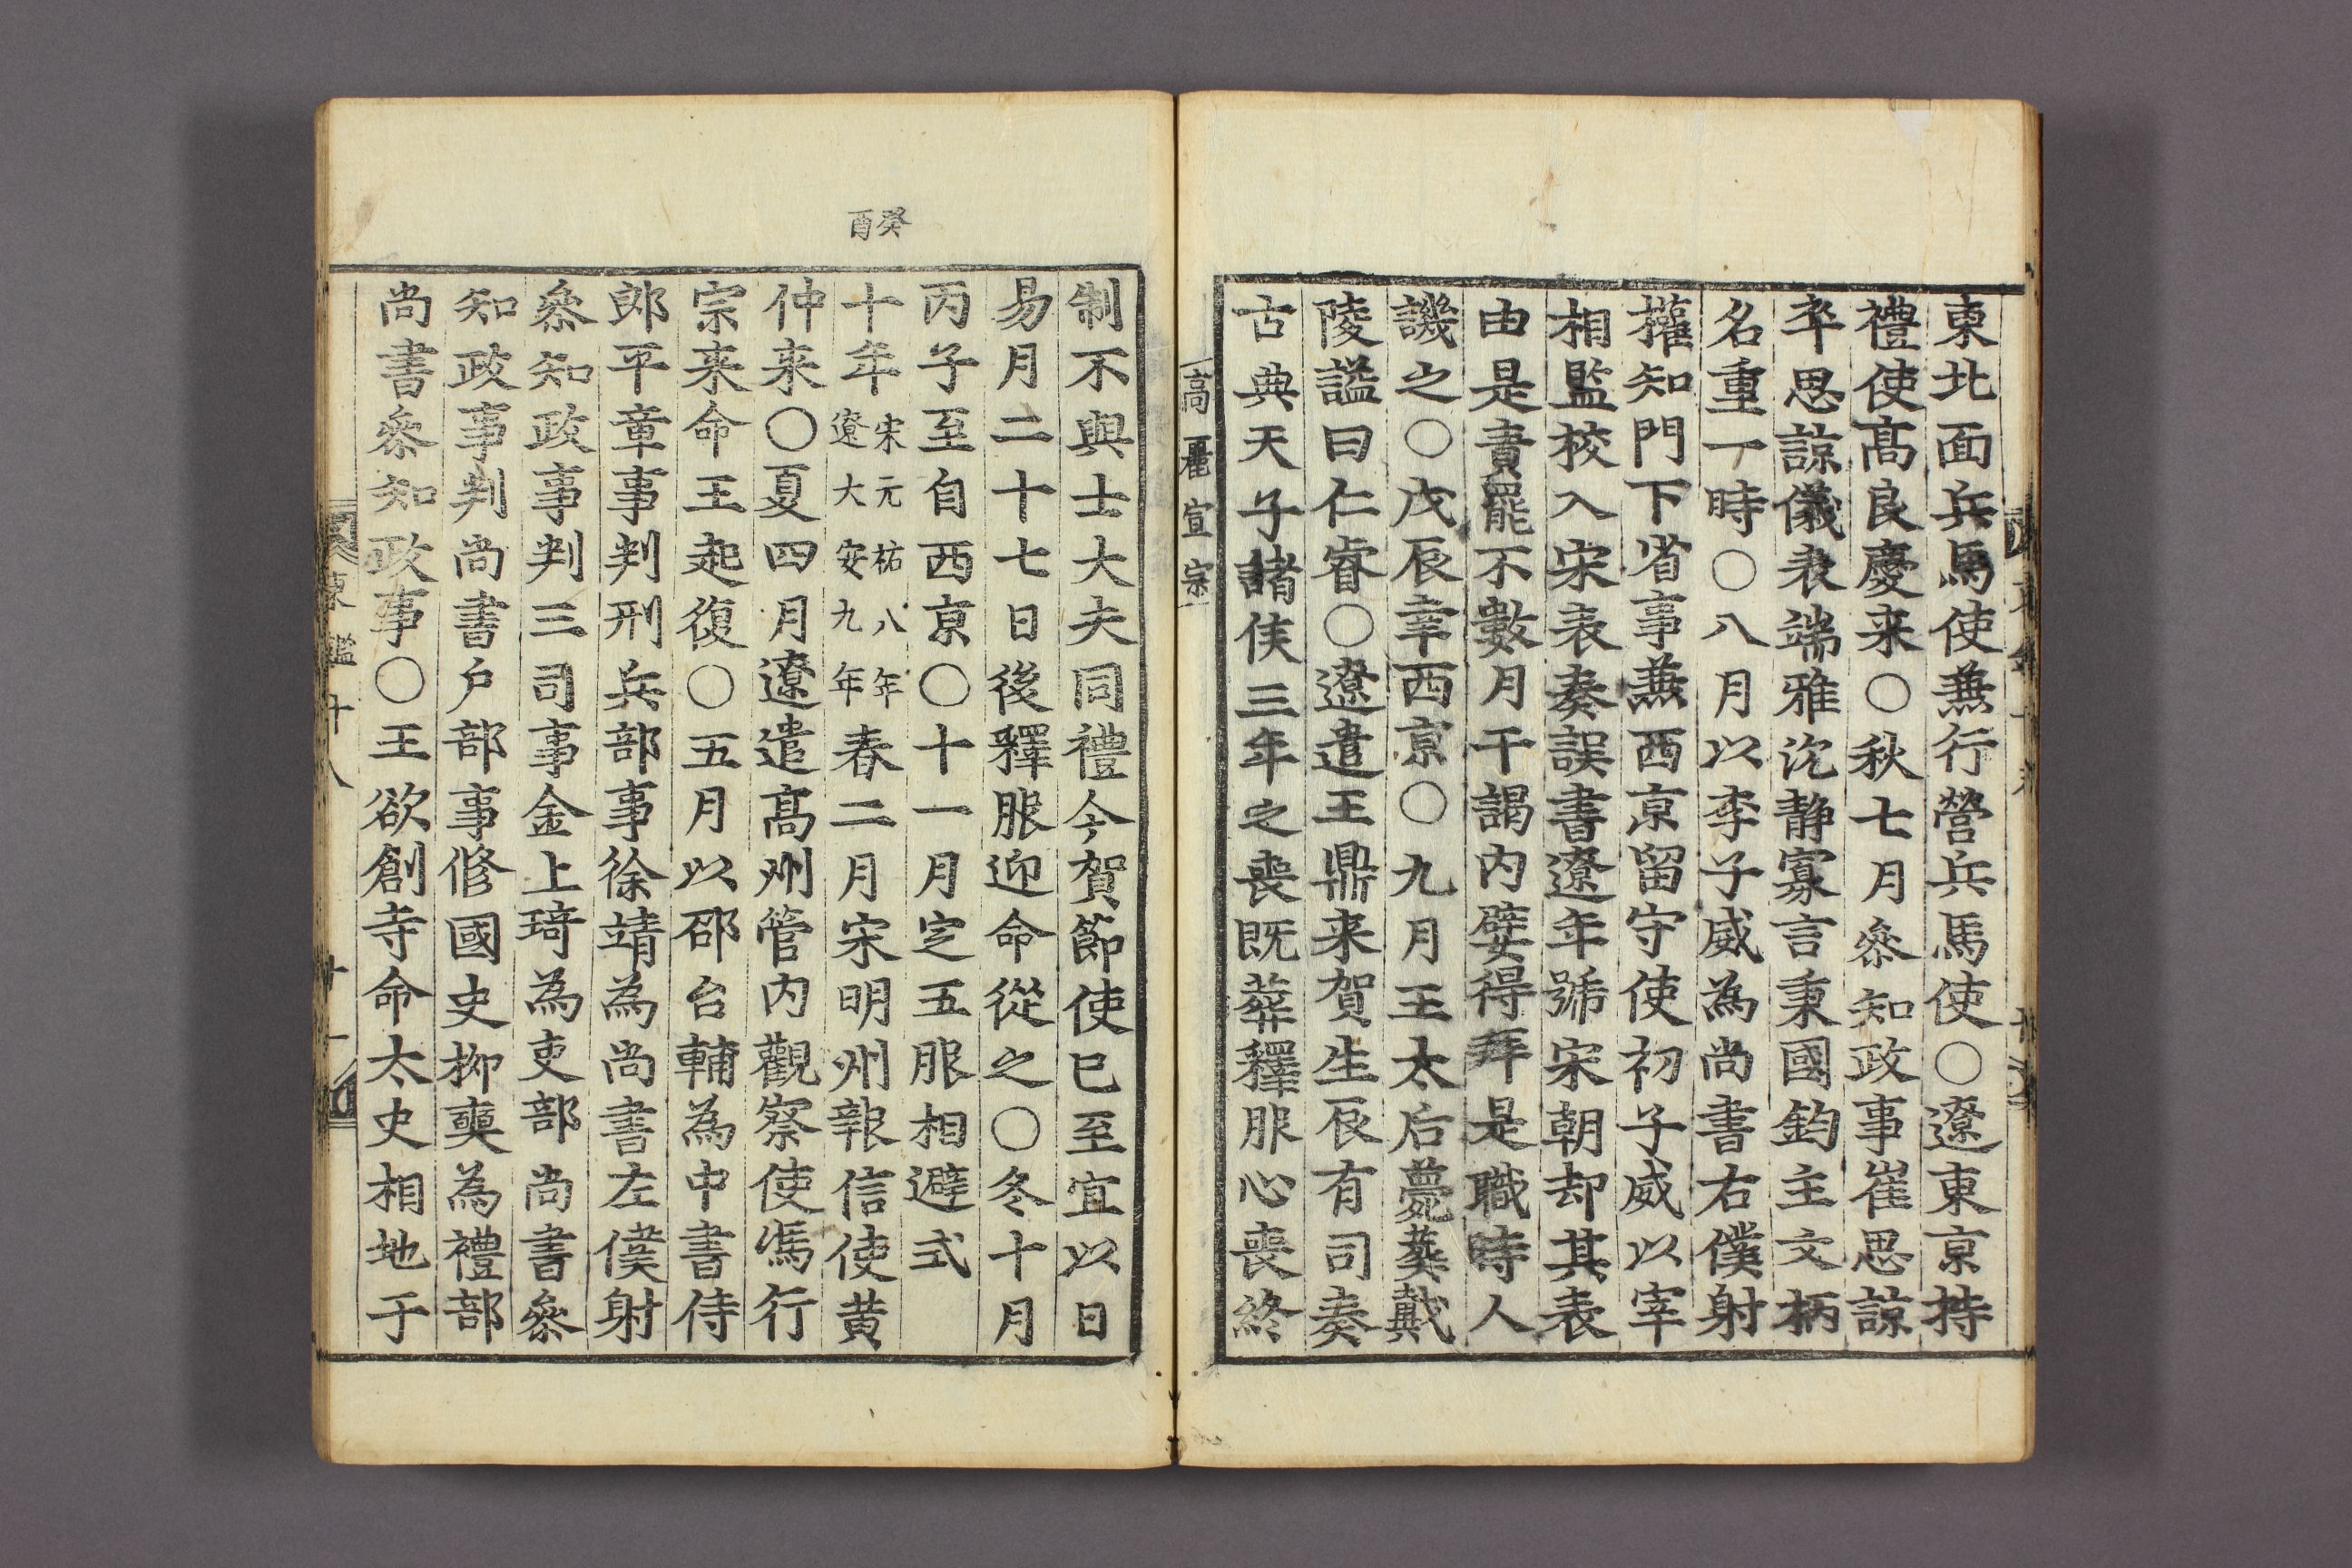 東北面兵馬使兼行營兵馬使○遼東京持
禮使髙良慶来○秋七月叅知政事崔思諒
卒思諒儀表端雅沉静寡言秉國鈞主文柄
名重一時○八月以李子威為尚書右僕射
權知門下省事兼西京留守使初子威以宰
相監校入宋表奏誤書遼年號宋朝却其表
由是責罷不數月干謁内嬖得拜是職時人
譏之○戊辰幸西京○九月王太后薨葬戴
陵謚曰仁睿○遼遣王鼎来賀生辰有司奏
古典天子諸侯三年之喪既葬釋服心喪終
高麗宣宗
癸酉
制不與士大夫同禮今賀節使已至宜以日
易月二十七日後釋服迎命從之○冬十月
丙子至自西京○十一月定五服相避式
十年宋元祐八年遼大安九年春二月宋明州報信使黄
仲来○夏四月遼遣髙州管内觀察使馮行
宗来命王起復○五月以邵台輔為中書侍
郎平章事判刑兵部事徐靖為尚書左僕射
叅知政事判三司事金上琦為吏部尚書叅
知政事判尚書戶部事修國史柳奭為禮部
尚書叅知政事○王欲創寺命太史相地于
東鑑十八